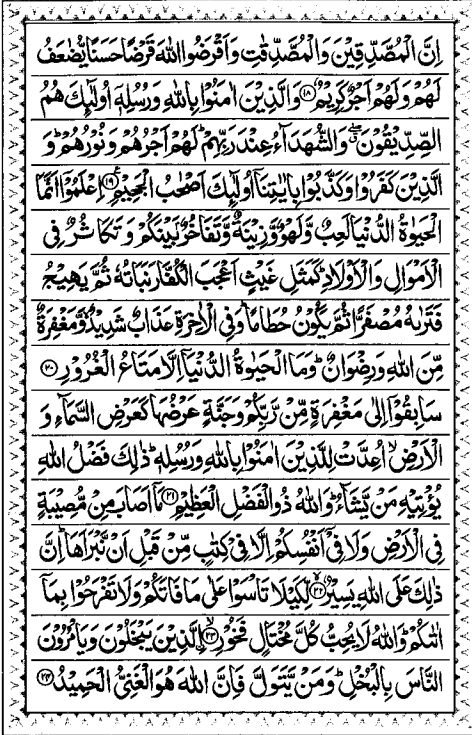 اِنَّ الْمُصَّدِّقِيْنَ وَالْمُصَّدِّقٰتِ وَاَقْرَضُوا اللّٰهَ قَرْضًا حَسَنًا يُّضٰعَفُ
لَهُمْ وَلَهُمْ اَجْرٌ كَرِيْمٌ ﴿۱۸﴾ وَالَّذِيْنَ اٰمَنُوْا بِاللّٰهِ وَرُسُلِهٖٓ اُولٰٓئِكَ هُمُ
الصِّدِّيْقُوْنَ ۖ وَالشُّهَدَآءُ عِنْدَ رَبِّهِمْ ؕ لَهُمْ اَجْرُهُمْ وَنُوْرُهُمْ ؕ وَ
الَّذِيْنَ كَفَرُوْا وَكَذَّبُوْا بِاٰيٰتِنَآ اُولٰٓئِكَ اَصْحٰبُ الْجَحِيْمِ ﴿۱۹﴾ اِعْلَمُوْٓا اَنَّمَا
الْحَيٰوةُ الدُّنْيَا لَعِبٌ وَّلَهْوٌ وَّزِيْنَةٌ وَّتَفَاخُرٌۢ بَيْنَكُمْ وَتَكَاثُرٌ فِى
الْاَمْوَالِ وَالْاَوْلَادِ ؕ كَمَثَلِ غَيْثٍ اَعْجَبَ الْكُفَّارَ نَبَاتُهٗ ثُمَّ يَهِيْجُ
فَتَرٰىهُ مُصْفَرًّا ثُمَّ يَكُوْنُ حُطَامًا ؕ وَفِى الْاٰخِرَةِ عَذَابٌ شَدِيْدٌ ۙ وَّمَغْفِرَةٌ
مِّنَ اللّٰهِ وَرِضْوَانٌ ؕ وَمَا الْحَيٰوةُ الدُّنْيَآ اِلَّا مَتَاعُ الْغُرُوْرِ ﴿۲۰﴾
سَابِقُوْٓا اِلٰى مَغْفِرَةٍ مِّنْ رَّبِّكُمْ وَجَنَّةٍ عَرْضُهَا كَعَرْضِ السَّمَآءِ وَ
الْاَرْضِ ۙ اُعِدَّتْ لِلَّذِيْنَ اٰمَنُوْا بِاللّٰهِ وَرُسُلِهٖ ؕ ذٰلِكَ فَضْلُ اللّٰهِ
يُؤْتِيْهِ مَنْ يَّشَآءُ ؕ وَاللّٰهُ ذُو الْفَضْلِ الْعَظِيْمِ ﴿۲۱﴾ مَآ اَصَابَ مِنْ مُّصِيْبَةٍ
فِى الْاَرْضِ وَلَا فِىْٓ اَنْفُسِكُمْ اِلَّا فِىْ كِتٰبٍ مِّنْ قَبْلِ اَنْ نَّبْرَاَهَا ؕ اِنَّ
ذٰلِكَ عَلَى اللّٰهِ يَسِيْرٌ ﴿۲۲﴾ لِّكَيْلَا تَاْسَوْا عَلٰى مَا فَاتَكُمْ وَلَا تَفْرَحُوْا بِمَآ
اٰتٰىكُمْ ؕ وَاللّٰهُ لَا يُحِبُّ كُلَّ مُخْتَالٍ فَخُوْرِ ﴿۲۳﴾ ۙ الَّذِيْنَ يَبْخَلُوْنَ وَيَاْمُرُوْنَ
النَّاسَ بِالْبُخْلِ ؕ وَمَنْ يَّتَوَلَّ فَاِنَّ اللّٰهَ هُوَ الْغَنِىُّ الْحَمِيْدُ ﴿۲۴﴾